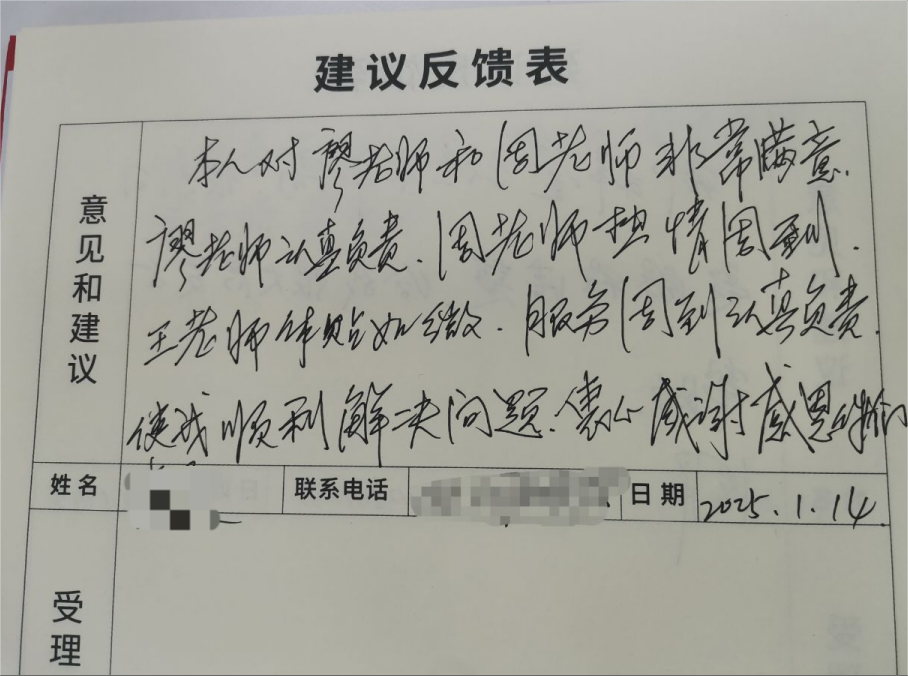 建议反馈表
意见和建议
本人对廖老师和周老师非常满意.
廖老师认真负责.周老师热情周到.
王老师体贴如微.服务周到认真负责.
使我顺利解决问题.衷心感谢感恩
姓名
联系电话
日期
2025.1.14
受理